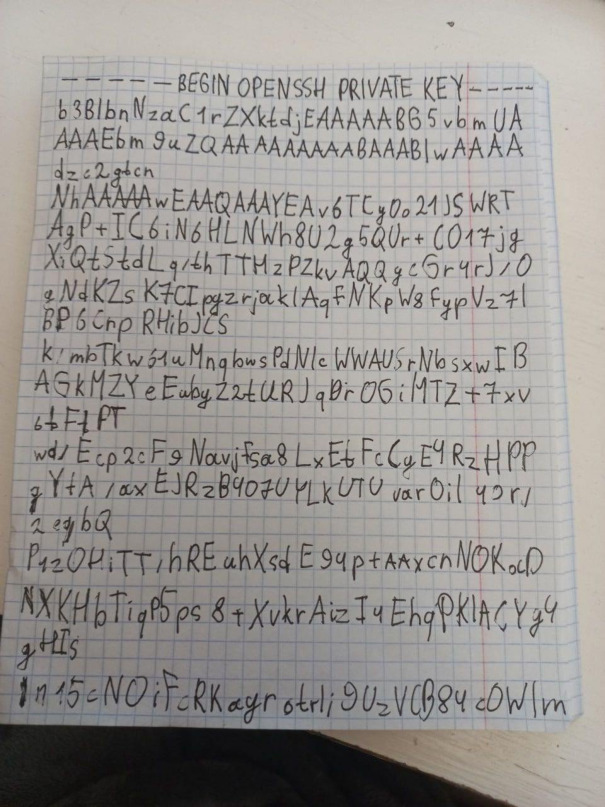 -----BEGIN OPENSSH PRIVATE KEY-----
b3BlbnNzaC1rZXktdjEAAAAABG5vbmUA
AAAEbm9uZQAAAAAAAAABAAABlwAAAA
dzc2gtcn
NhAAAAAwEAAQAAAYEAv6TCyOo21JSWRT
AgP+IC6iN6HLNWh8U2g5QUr+CO17jg
XiQt5tdLq/thTTMzPZkvAQQgcGr4rJ/O
gNdKZsK7CIpgzrjaklAqfNKpW8FypVz7l
BP6CnpRHibJCS
k/mbTkw61uMnqbwsPdNlcWWAUSrNbsxwIB
AGkMZYeEubyZ2tURJqDrOGiMTZ+7xv
6tFfPT
wd/Ecp2cF9Navjfsa8LxEtFcCgE4RzHPP
gYtA/axEJRzB4O7UYLkUTUvarOil4or/
2egbQ
P1zOHiTT/hREuhXsdE94p+AAxcnNOKocD
NXKHbTiqP5ps8+XvkrAizI4EhqPKlACYg4
gHIs
1n15cNOiFcRKagrotrli9UzVCB84cOWlm